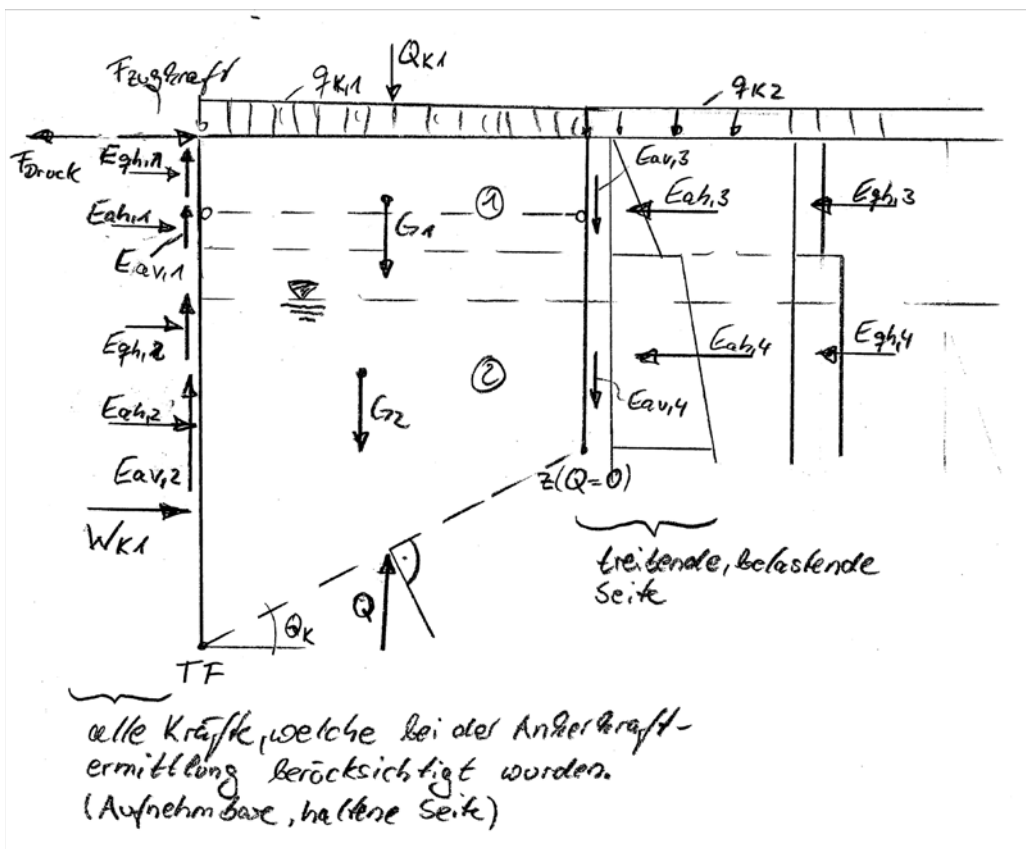 QK1
FZugkraft
qK,1
qK2
FDruck
Eqh,1
Eav,3
Eah,3
Eqh,3
Eah,1
G1
1
Eav,1
Eqh,2
Eah,4
Eqh,4
G2
2
Eah,2
Eav,4
Eav,2
z(Q=0)
WK1
treibende, belastende
Seite
Q
ΘK
TF
alle Kräfte, welche bei der Ankerkraft-
ermittlung berücksichtigt wurden.
(Aufnehmbare, haltene Seite)